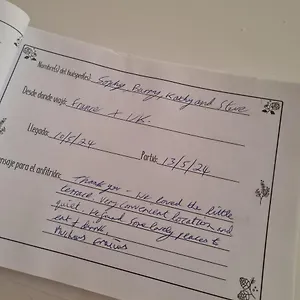 Nombre(s) del huésped(es) Sophie, Barny, Kathy and Steve
Desde donde viajó: France & UK.
Llegada: 10/5/24 Partió: 13/5/24
nsaje para el anfitrión: Thank you - we loved the little
terrace. Very convenient location and
quiet. We found some lovely places to
eat & drink.
Muchas Gracias